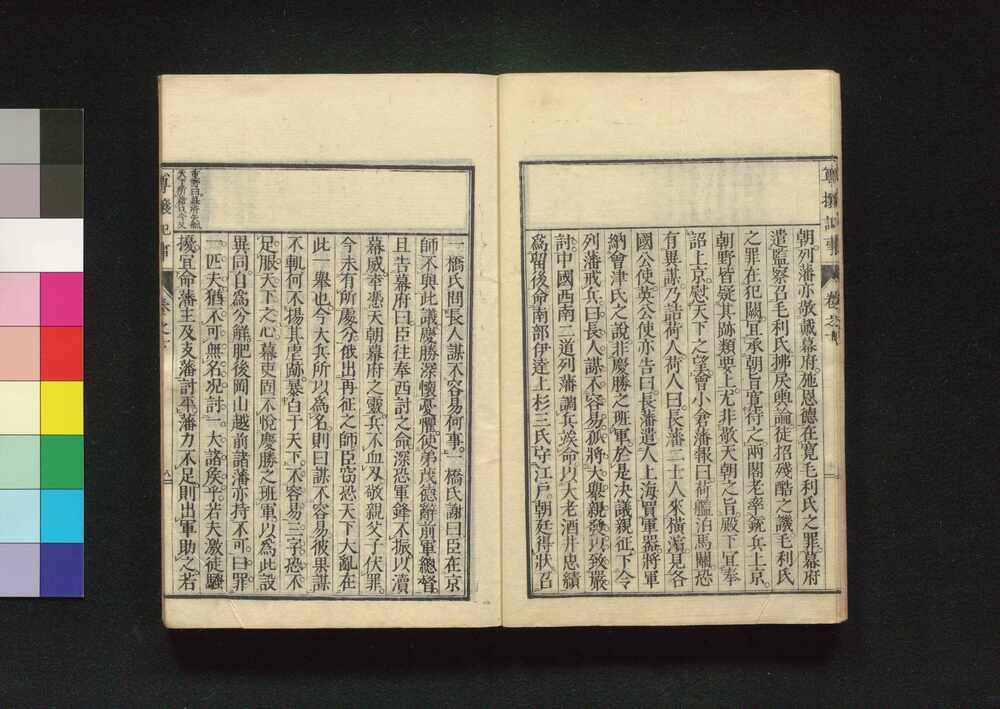 朝列藩亦敬戴幕府施恩德在寬毛利氏之罪幕府
遣監察召毛利氏拂戾輿論徒招殘酷之譏毛利氏
之罪在犯闕宜承朝旨寬待之兩閣老率銃兵上京
朝野皆疑其跡類要上尤非敬天朝之旨殿下宜奉
詔上京慰天下之望會小倉藩報曰荷艦泊馬關恐
有異謀乃詰荷人荷人曰長藩二士人來橫濱見各
國公使英公使亦告曰長藩遣人上海買軍器將軍
納會津氏之說非慶勝之班軍於是決議親征下令
列藩戒兵曰長人謀不容易孤將大舉親發以致嚴
討中國西南二道列藩調兵竢命以大老酒井忠績
爲留後命南部伊達上杉三氏守江戶朝廷得狀召
一橋氏問長人謀不容易何事一橋氏謝曰臣在京
師不與此議慶勝深懷憂懼使弟茂德辭前軍總督
且告幕府曰臣往奉西討之命深恐軍鋒不振以瀆
幕威奉憑天朝幕府之靈兵不血刄敬親父子伏罪
今未有所處分俄出再征之師臣窃恐天下大亂在
此一舉也今大兵所以爲名則曰謀不容易彼果謀
不軌何不揚其虐跡暴白于天下不容易三字恐不
足服天下之心幕吏固不悅慶勝之班軍以爲此設
異同自爲分解肥後岡山越前諸藩亦持不可曰罪
一匹夫猶不可無名況討一大諸矦乎若夫激徒騷
擾宜命藩主及支藩討平藩力不足則出軍助之若